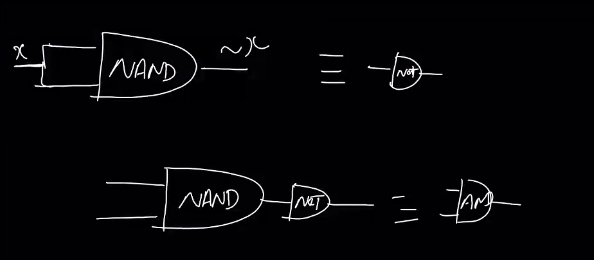 x NAND ~x ≡ NOT
NAND NOT ≡ AND